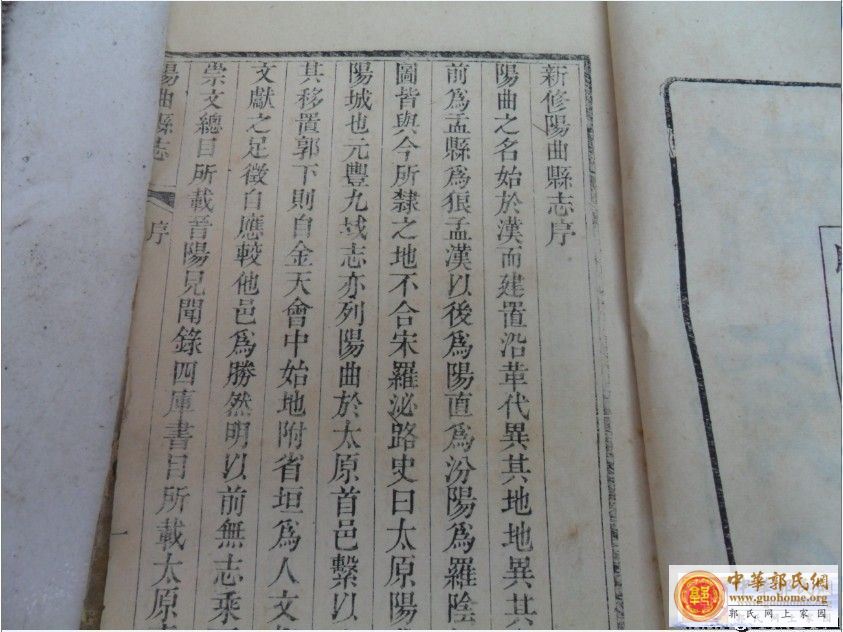 新修陽曲縣志序
陽曲之名始於漢而建置沿革代異其地地異其
前為孟縣為狼孟漢以後為陽直為汾陽為羅陰
圖皆與今所隸之地不合宋羅泌路史曰太原陽
陽城也元豐九域志亦列陽曲於太原首邑繫以
其移置郭下則自金天會中始地附省垣為人文
文獻之足徵白應較他邑為勝然明以前無志乘
崇文總目所載晉陽見聞錄四庫書目所載太原
陽曲縣志 序
中華郭氏網
www.guohome.org
郭氏網上家園